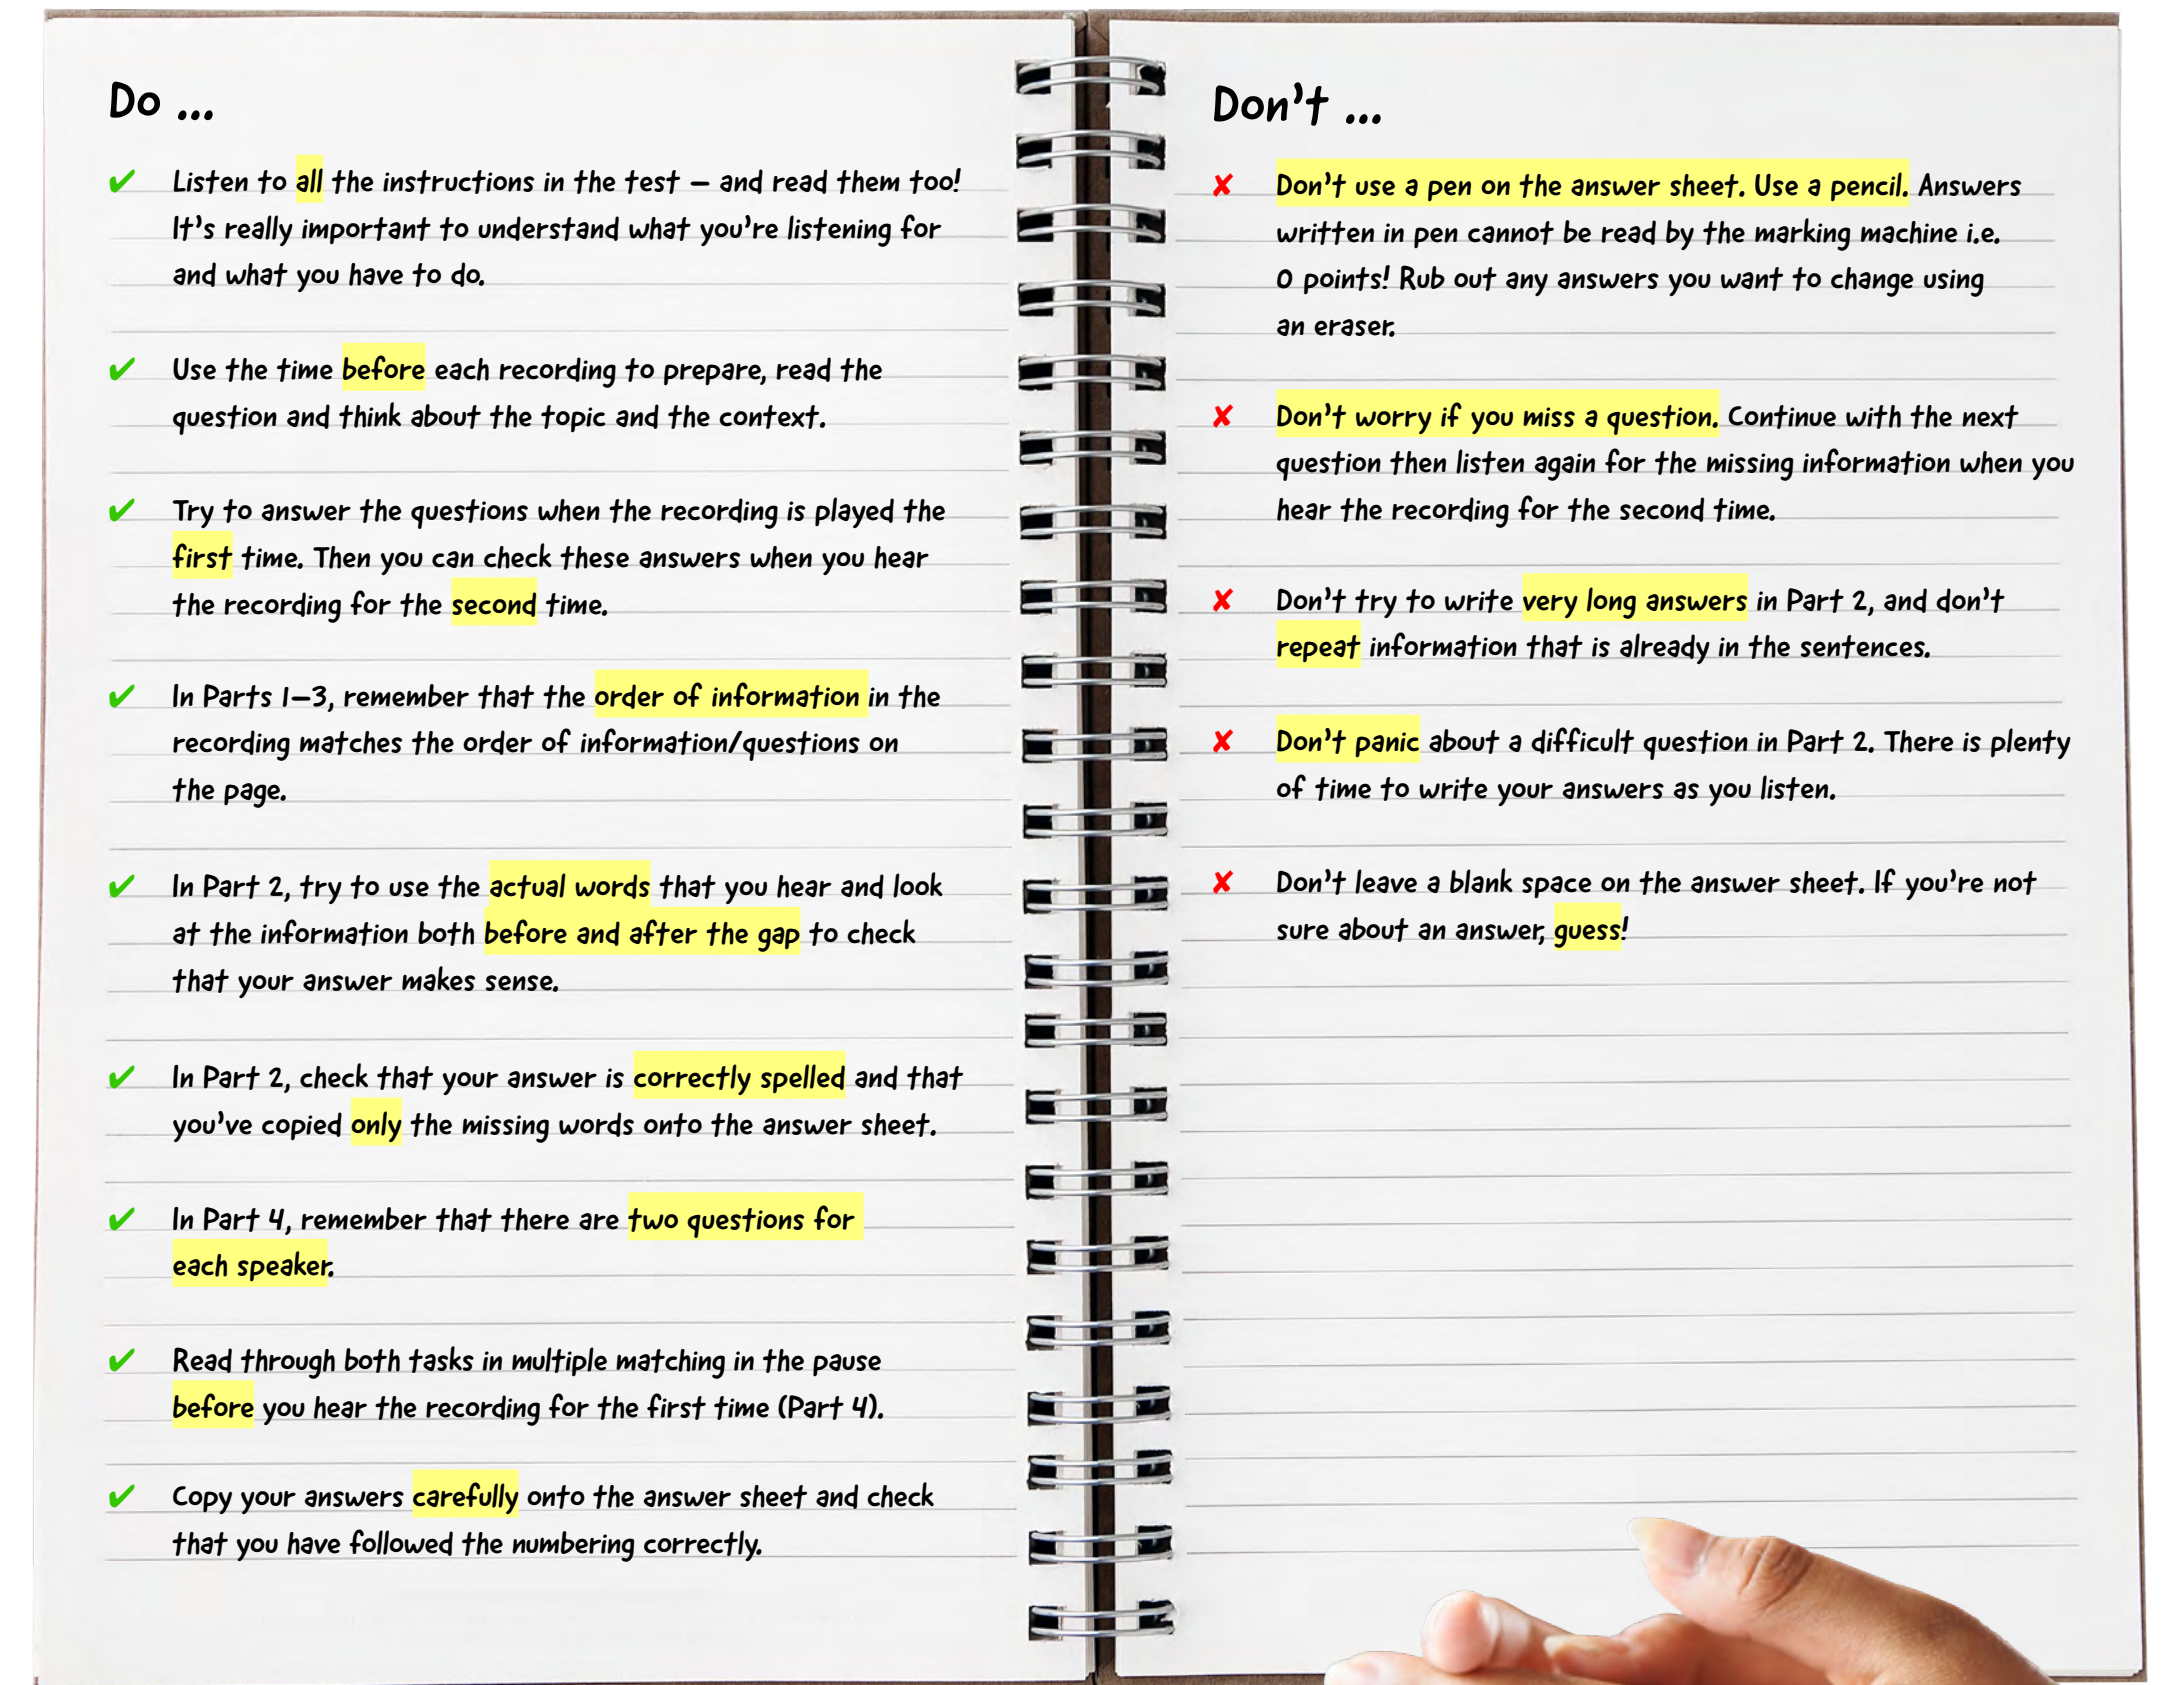 Do ...
✔ Listen to all the instructions in the test – and read them too!
It's really important to understand what you're listening for
and what you have to do.
✔ Use the time before each recording to prepare, read the
question and think about the topic and the context.
✔ Try to answer the questions when the recording is played the
first time. Then you can check these answers when you hear
the recording for the second time.
✔ In Parts 1–3, remember that the order of information in the
recording matches the order of information/questions on
the page.
✔ In Part 2, try to use the actual words that you hear and look
at the information both before and after the gap to check
that your answer makes sense.
✔ In Part 2, check that your answer is correctly spelled and that
you've copied only the missing words onto the answer sheet.
✔ In Part 4, remember that there are two questions for
each speaker.
✔ Read through both tasks in multiple matching in the pause
before you hear the recording for the first time (Part 4).
✔ Copy your answers carefully onto the answer sheet and check
that you have followed the numbering correctly.
Don't ...
✘ Don't use a pen on the answer sheet. Use a pencil. Answers
written in pen cannot be read by the marking machine i.e.
0 points! Rub out any answers you want to change using
an eraser.
✘ Don't worry if you miss a question. Continue with the next
question then listen again for the missing information when you
hear the recording for the second time.
✘ Don't try to write very long answers in Part 2, and don't
repeat information that is already in the sentences.
✘ Don't panic about a difficult question in Part 2. There is plenty
of time to write your answers as you listen.
✘ Don't leave a blank space on the answer sheet. If you're not
sure about an answer, guess!